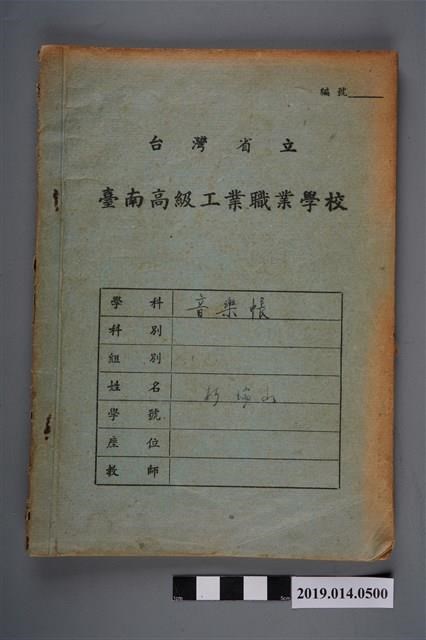 編號
台灣省立
臺南高級工業職業學校
學科 音樂帳
科別
組別
姓名
學號
座位
教師
1cm 5cm
2019.014.0500